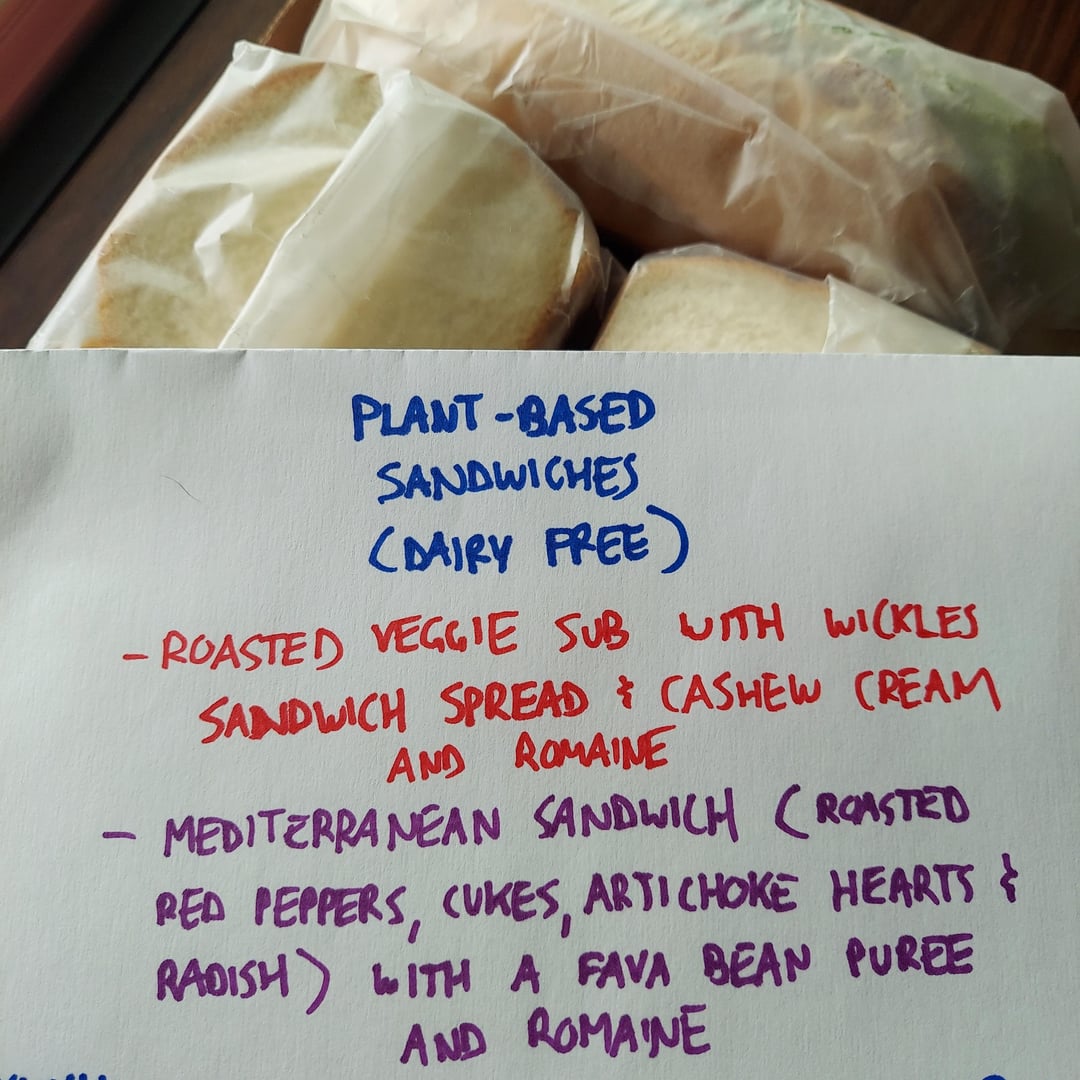 PLANT-BASED
SANDWICHES
(DAIRY FREE)
- ROASTED VEGGIE SUB WITH WICKLES
SANDWICH SPREAD & CASHEW CREAM
AND ROMAINE
- MEDITERRANEAN SANDWICH (ROASTED
RED PEPPERS, CUKES, ARTICHOKE HEARTS &
RADISH) WITH A FAVA BEAN PUREE
AND ROMAINE